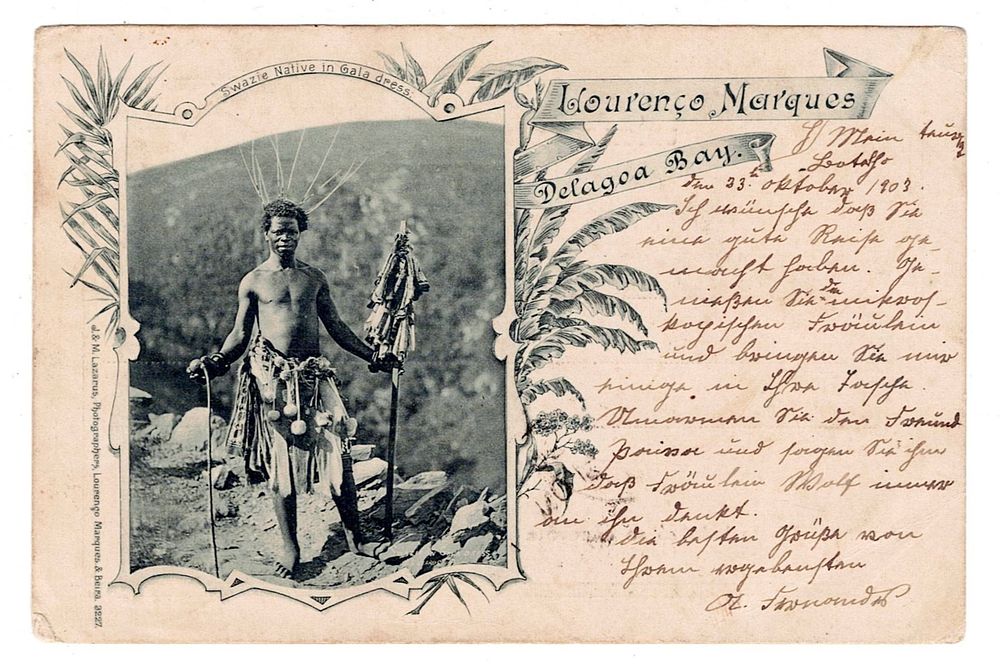 Swazie Native in Gala dress.
Lourenço Marques
Delagoa Bay.
Mein
den 23. Oktober 1903.
Ich wünsche daß Sie
eine gute Reise ge-
macht haben. Ge-
nießen Sie die mikros-
kopischen Fräulein
und bringen Sie mir
einige in Ihre Tasche.
Umarmen Sie den Freund
Paiva und sagen Sie ihm
daß Fräulein Wolf immer
an ihn denkt.
Die besten Grüße von
Ihrem ergebensten
A. Fernandes
J. & M. Lazarus, Photographers, Lourenço Marques & Beira. 2227.